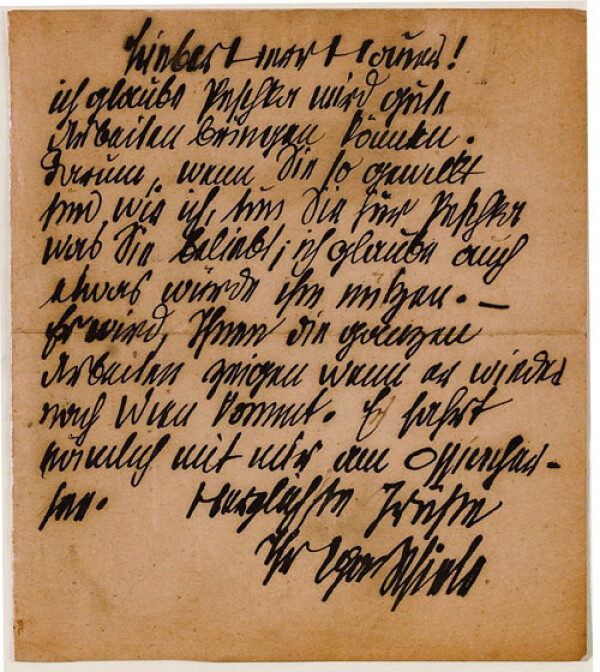 Lieber Herr Hauer!
ich glaube Peschka wird gute
Arbeiten bringen können.
Darum, wenn Sie so gewillt
sind wie ich, tun Sie für Peschka
was Sie beliebt; ich glaube auch
etwas würde ihm nützen. —
Er wird, Ihnen die ganzen
Arbeiten zeigen wenn er wieder
nach Wien kommt. Er fährt
nämlich mit mir am Ossiacher-
see. Herzlichste Grüße
Ihr Egon Schiele